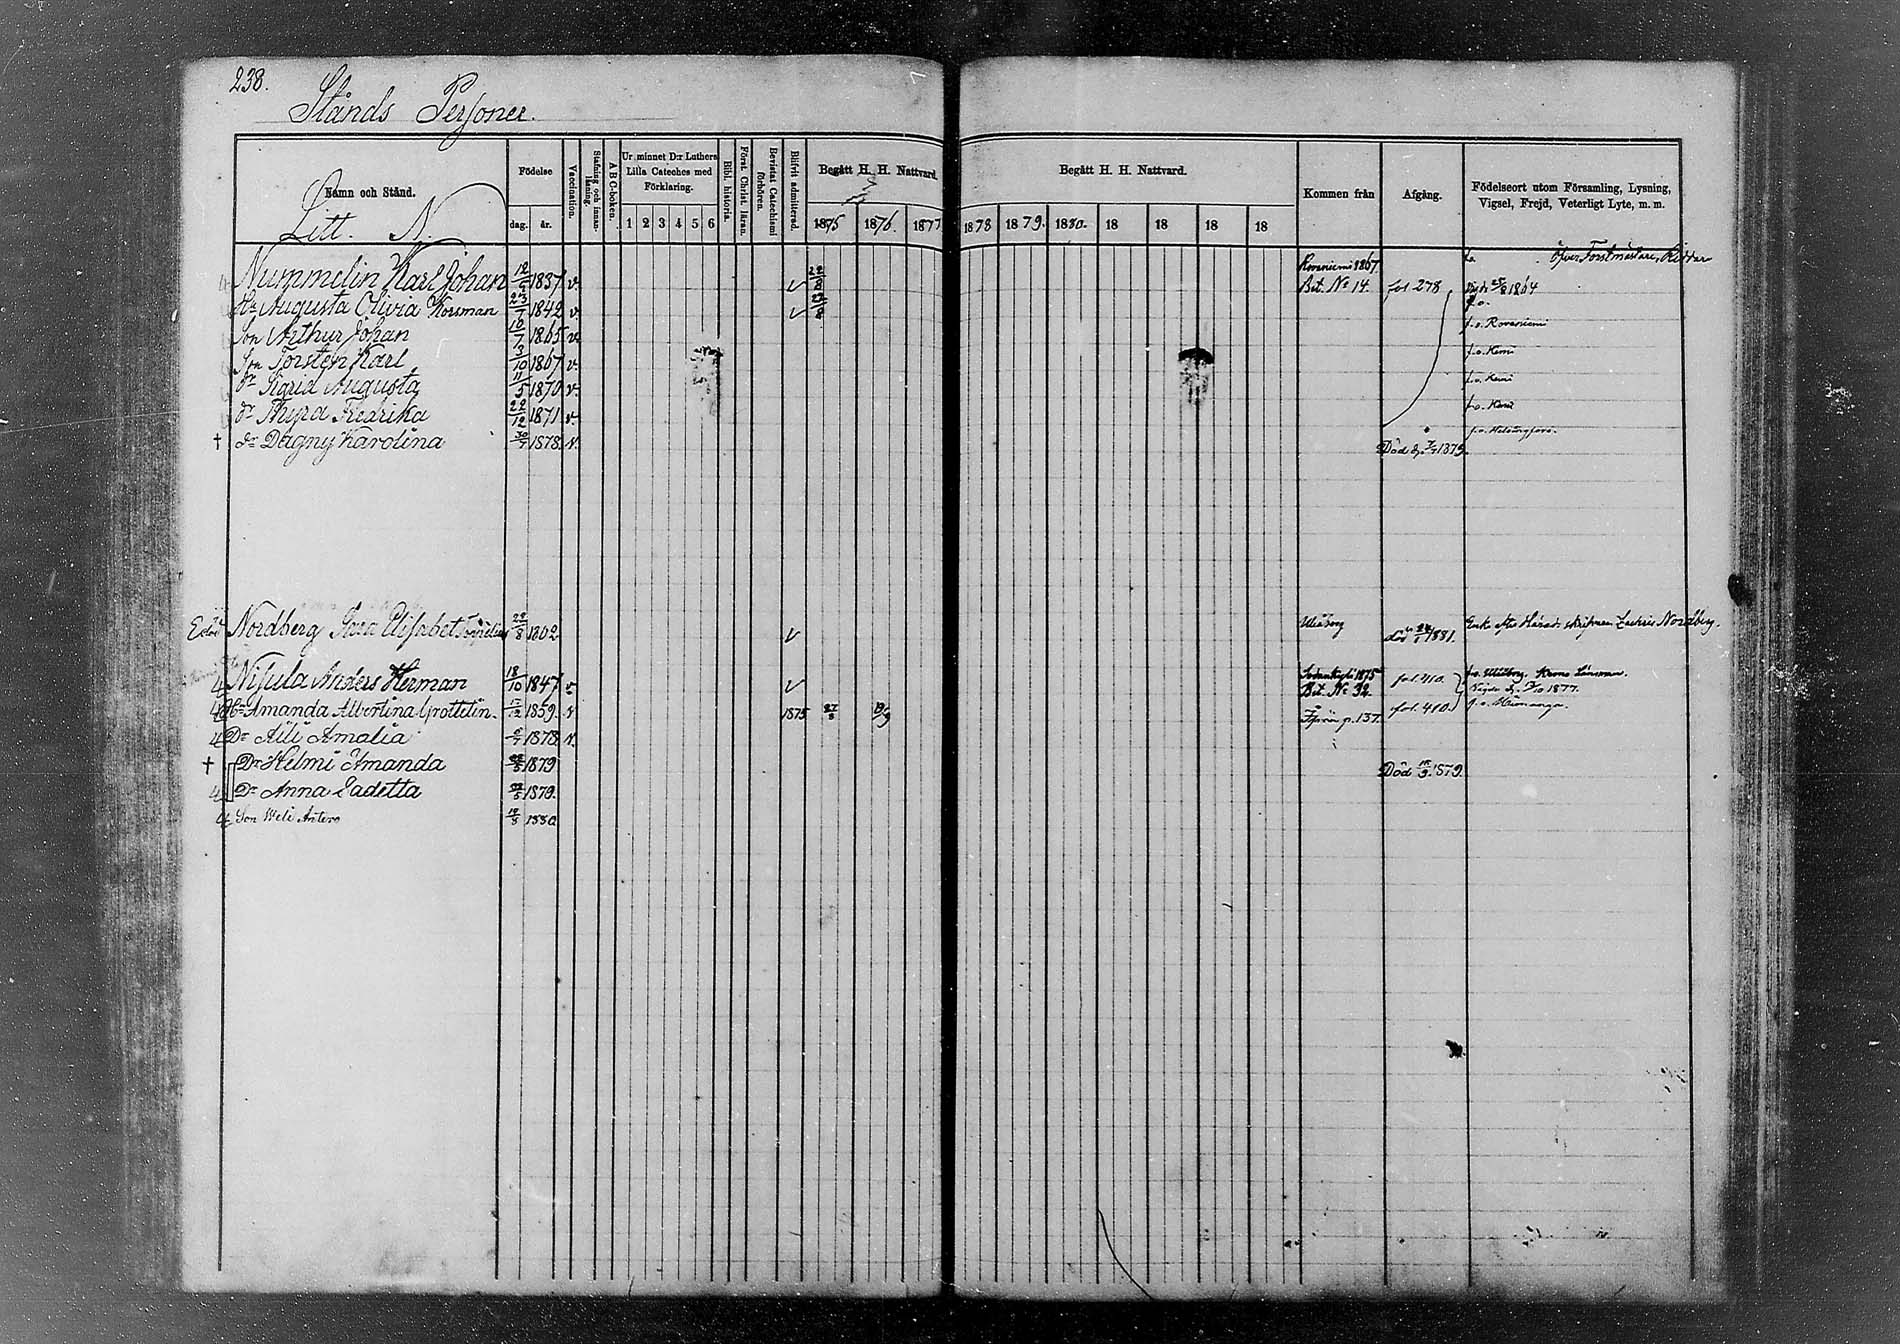 238.
Stånds Personer.
Namn och Stånd.
Litt. N.
Födelse
dag. år.
Vaccination.
Stafning och innanläsning.
ABC-boken.
Ur minnet D:r Luthers Lilla Cateches med Förklaring.
1 2 3 4 5 6
Bibl. historia.
Först. Christ. läran.
Bevistat Catechismi förhören.
Blifvit admitterad.
Begått H. H. Nattvard.
1875 1876. 1877
Begått H. H. Nattvard.
1878 1879. 1880. 18 18 18 18
Kommen från
Afgång.
Födelseort utom Församling, Lysning, Vigsel, Frejd, Veterligt Lyte, m. m.
Öfver Forstmästare, Riddar
Nummelin Karl Johan 1837 v. Rovaniemi 1867. Bet. No 14. fol 278 1864
Hu Augusta Olivia Korsman 23/7 1842 v.
Son Arthur Johan 16/7 1865 v. f.o. Rovaniemi
Son Torsten Karl 1867 v. f.o. Kemi
Dr Sigrid Augusta 11/5 1870 v. f.o. Kemi
Dr Thyra Fredrika 22/12 1871 v. f.o. Kemi
† Dr Dagny Karolina 1878. v. f.o. Helsingfors.
Död 1879.
Nordberg Sara Elisabet 22/8 1802 Uleåborg död 1881. Enka efter Härads skrifvaren Zachris Nordberg.
Nisula Anders Herman 18/10 1847 v Sodankylä 1875 Bet. No 32. fol. 410. f.o. Uleåborg. Krono Länsman.
Vigde 1877.
Hu Amanda Albertina Grottelin. 1859. v 1875 27/8 fol. 410. p. 137.
Dr Aili Amalia 1878 v.
† Dr Helmi Amanda 1879 Död 1879.
4 Dr Anna Zadetta 1879.
4 Son Weli Antero 1880